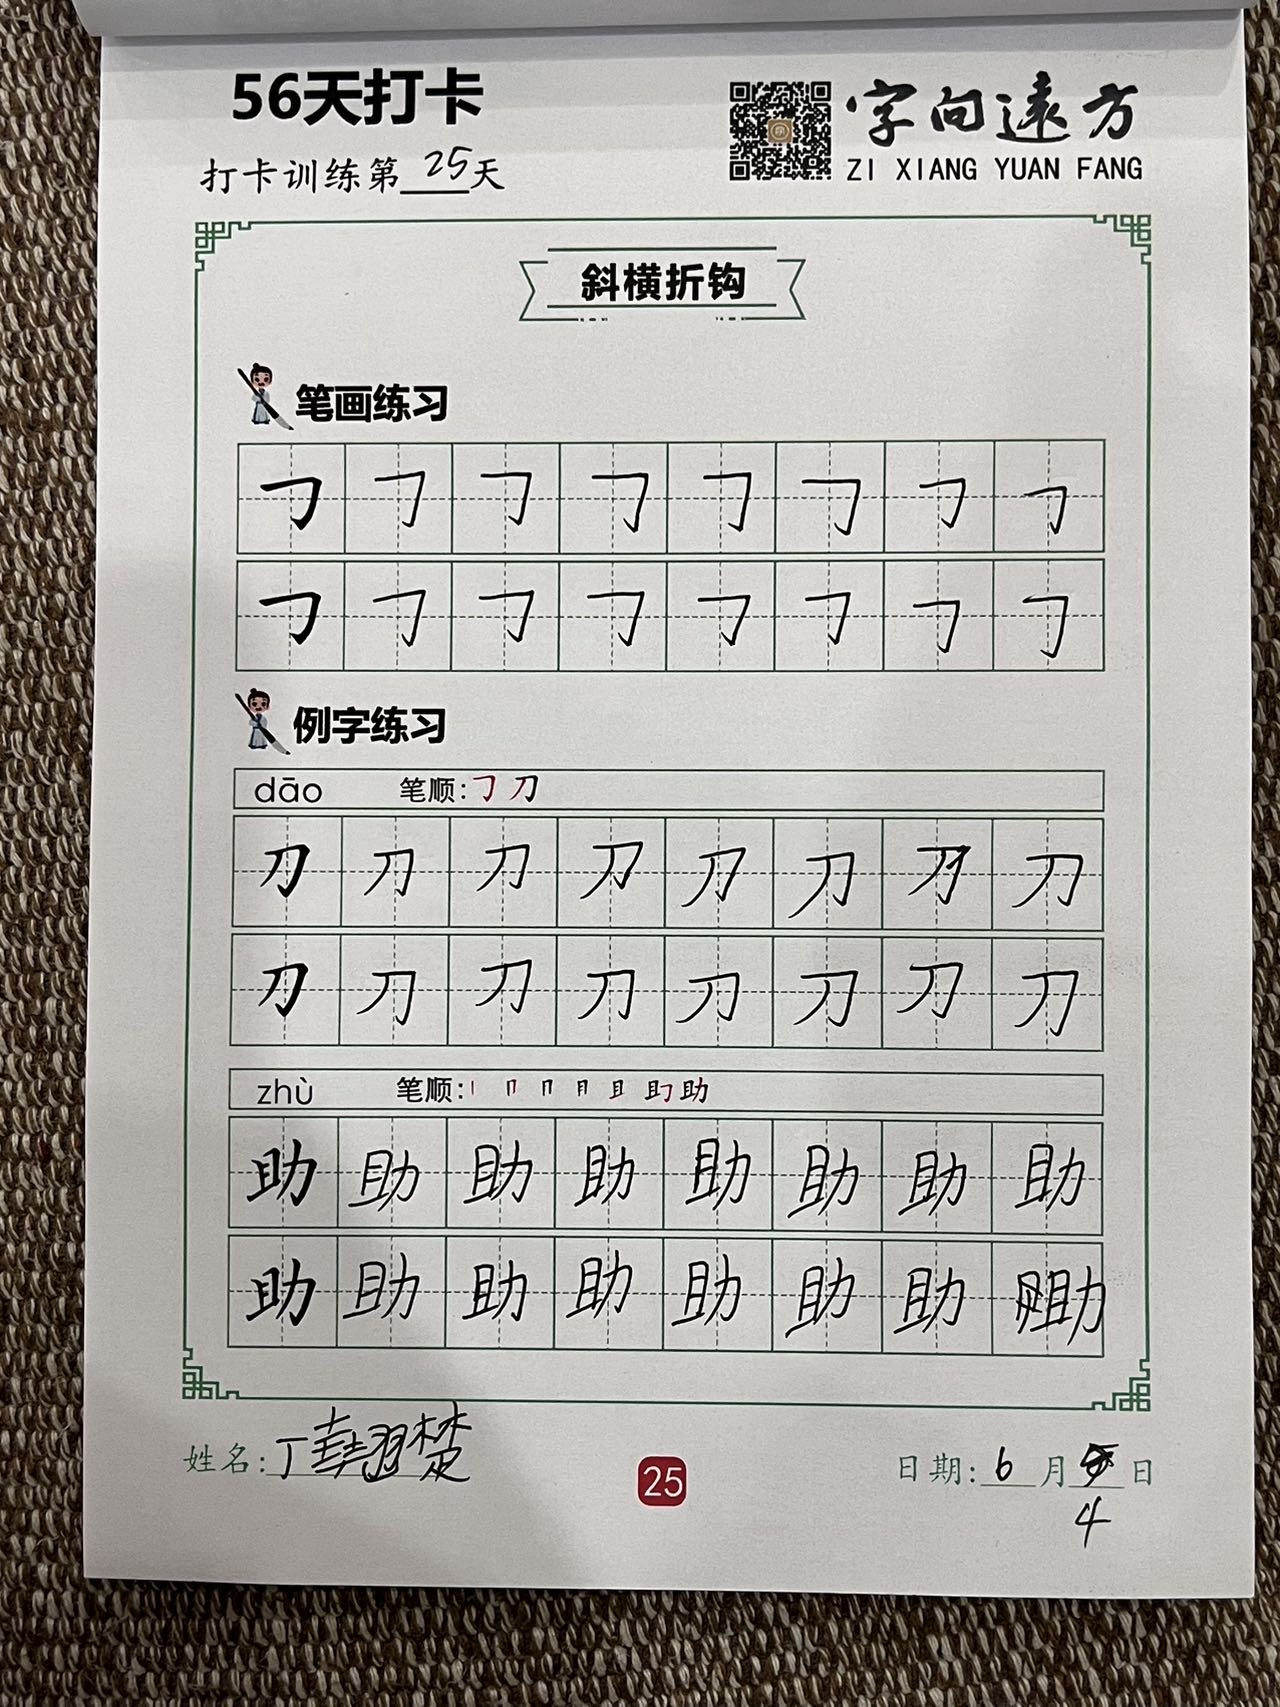 56天打卡
字向远方
ZI XIANG YUAN FANG
打卡训练第25天
斜横折钩
笔画练习
㇆ ㇆ ㇆ ㇆ ㇆ ㇆ ㇆ ㇆
㇆ ㇆ ㇆ ㇆ ㇆ ㇆ ㇆ ㇆
例字练习
dāo 笔顺:㇆ 刀
刀 刀 刀 刀 刀 刀 刀 刀
刀 刀 刀 刀 刀 刀 刀 刀
zhù 笔顺:丨 冂 冂 月 且 助
助 助 助 助 助 助 助 助
助 助 助 助 助 助 助 助
姓名:丁 翌楚
25
日期:6月4日